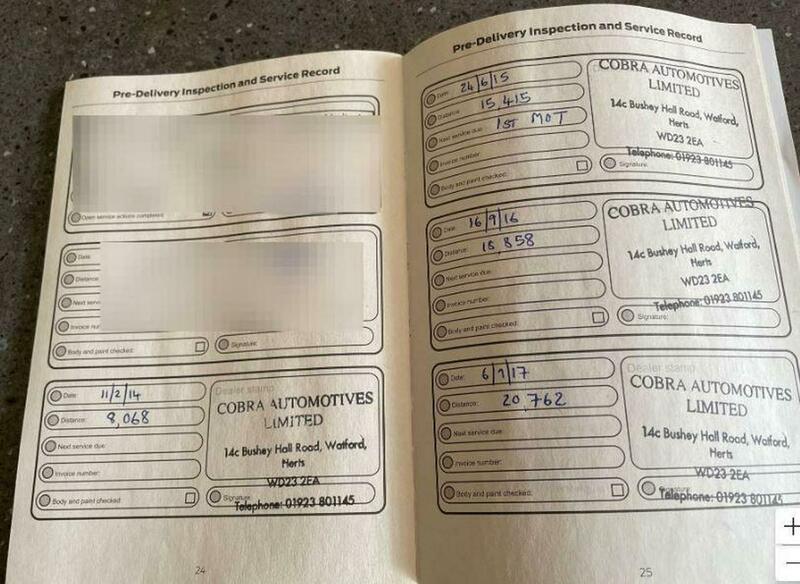 Pre-Delivery Inspection and Service Record
Open service actions completed:
Date:
Distance:
Next serv
Invoice nu
Body and paint checked:
Signature:
Date: 11/2/14
Distance: 8,068
Next service due:
Invoice number:
Body and paint checked:
Dealer stamp
COBRA AUTOMOTIVES
LIMITED
14c Bushey Hall Road, Watford,
Herts
WD23 2EA
Signature:
Telephone: 01923 801145
24
Pre-Delivery Inspection and Service Record
Date: 24/6/15
Distance: 15 415
Next service due: 1ST MOT
Invoice number:
Body and paint checked:
COBRA AUTOMOTIVES
LIMITED
14c Bushey Hall Road, Watford,
Herts
WD23 2EA
Telephone: 01923 801145
Signature:
Date: 16/9/16
Distance: 18 858
Next service due:
Invoice number:
Body and paint checked:
COBRA AUTOMOTIVES
LIMITED
14c Bushey Hall Road, Watford,
Herts
WD23 2EA
Telephone: 01923 801145
Signature:
Date: 6/7/17
Distance: 20,762
Next service due:
Invoice number:
Body and paint checked:
Dealer stamp
COBRA AUTOMOTIVES
LIMITED
14c Bushey Hall Road, Watford,
Herts
WD23 2EA
Signature:
Telephone: 01923 801145
25